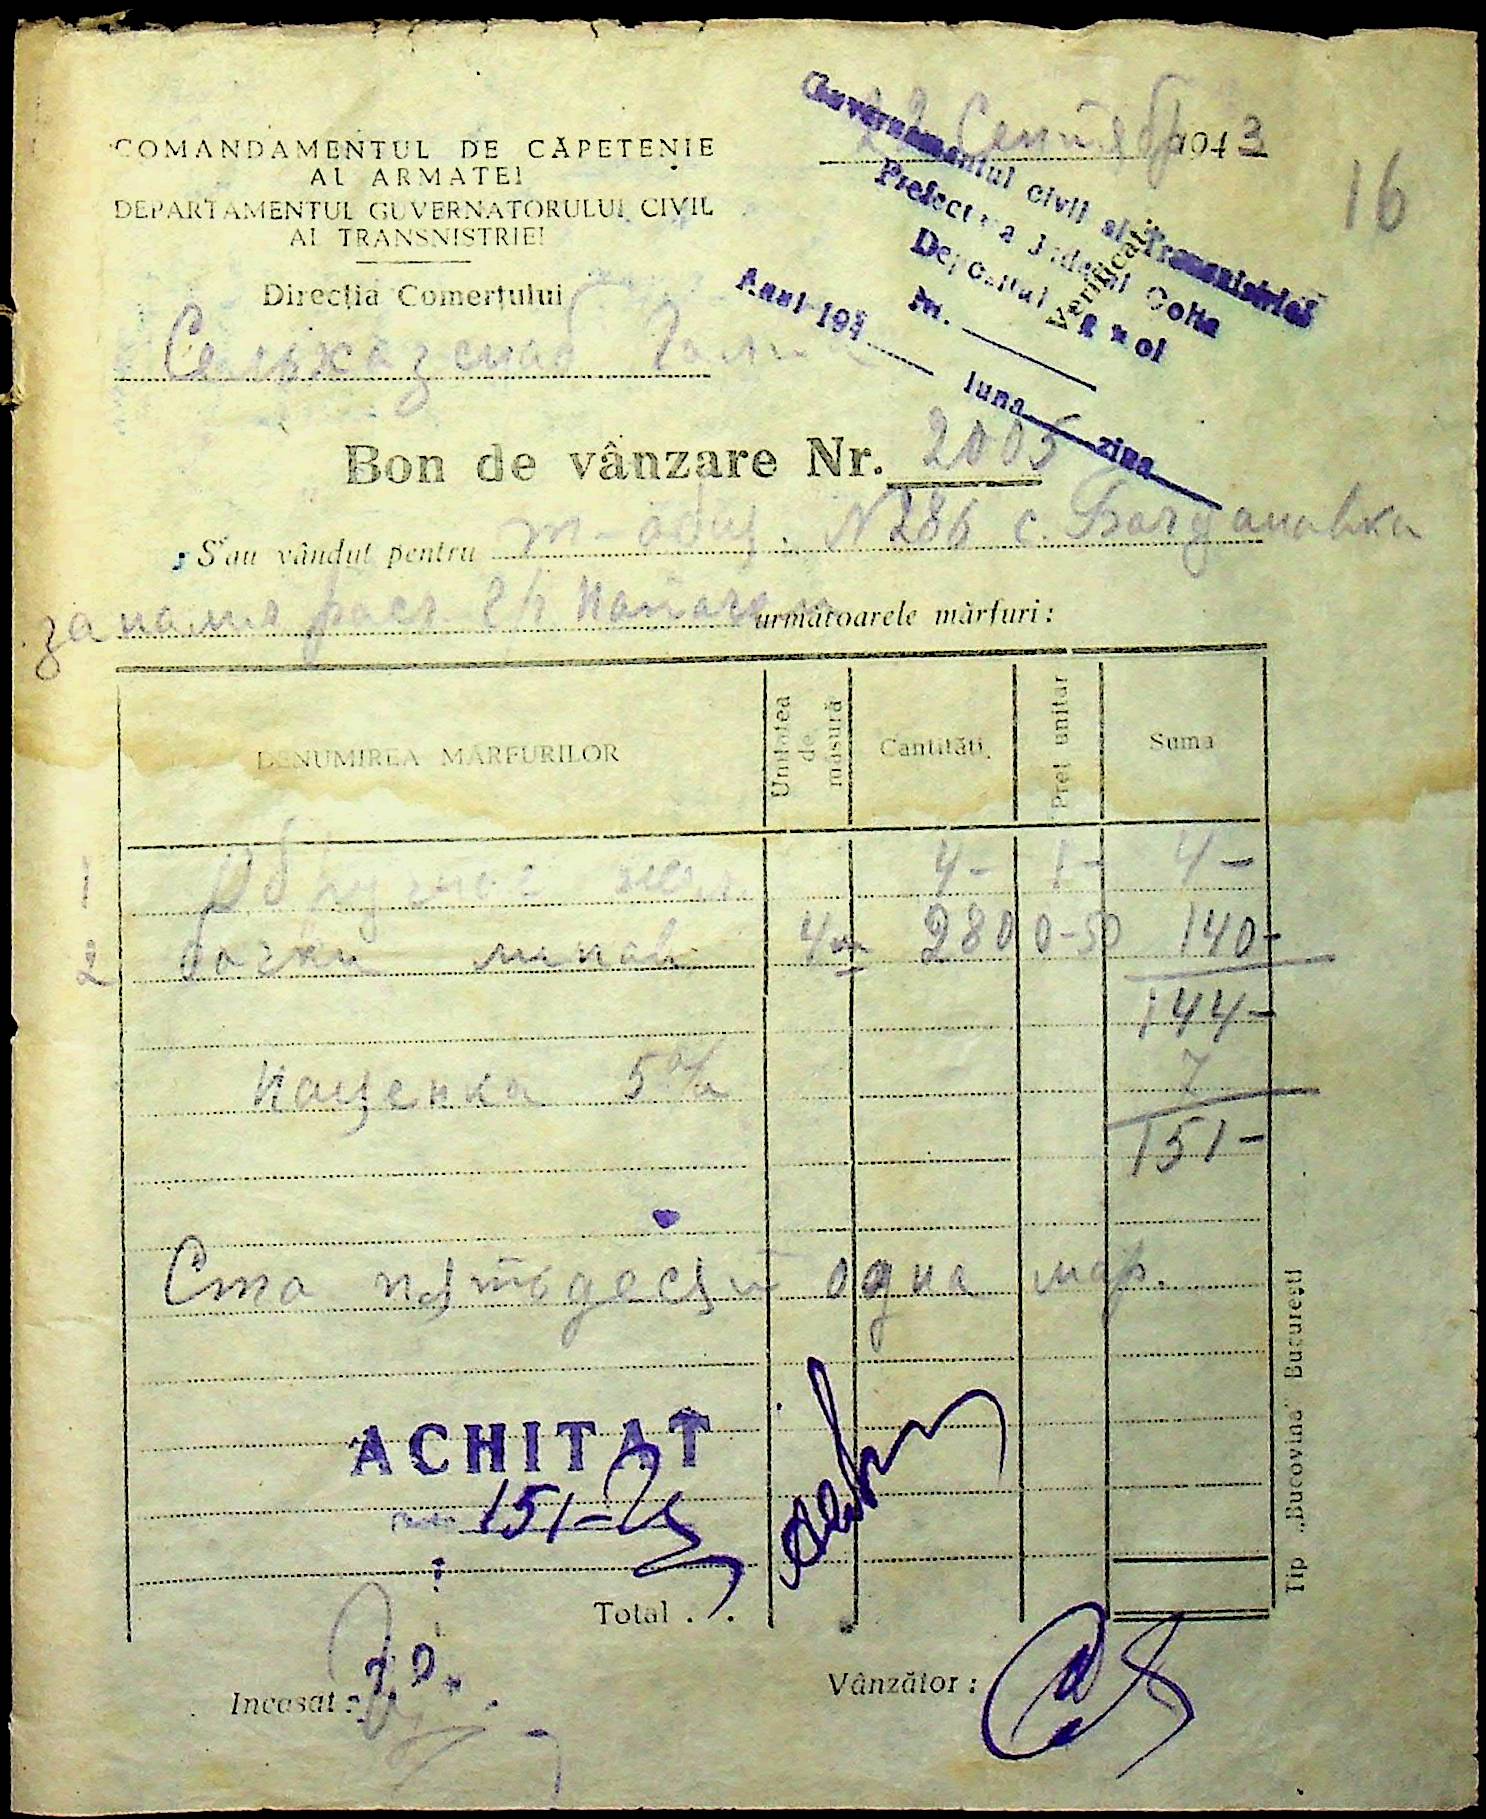 22 Сентябр 1943
16
COMANDAMENTUL DE CĂPETENIE
AL ARMATEI
DEPARTAMENTUL GUVERNATORULUI CIVIL
AL TRANSNISTRIEI
Direcția Comerțului
Guvernamentul civil al Transnistriei
Prefectura Județul Golta
Depozitul
Verificat
m.
Anul 194 luna ziua
Сельхозснаб
Bon de vânzare Nr. 2005
S'au vândut pentru т-общ. N 286 с. Богдановка
următoarele mărfuri:
DENUMIREA MĂRFURILOR
Unitatea de măsură
Cantități
Preț unitar
Suma
1 4- 1- 4-
2 бочки 4 280 0-50 140-
144-
Наценка 5% 7
151-
Сто пятьдесят одна мар.
ACHITAT
151-
Total . . .
Incasat:
Vânzător:
Tip „Bucovina" București